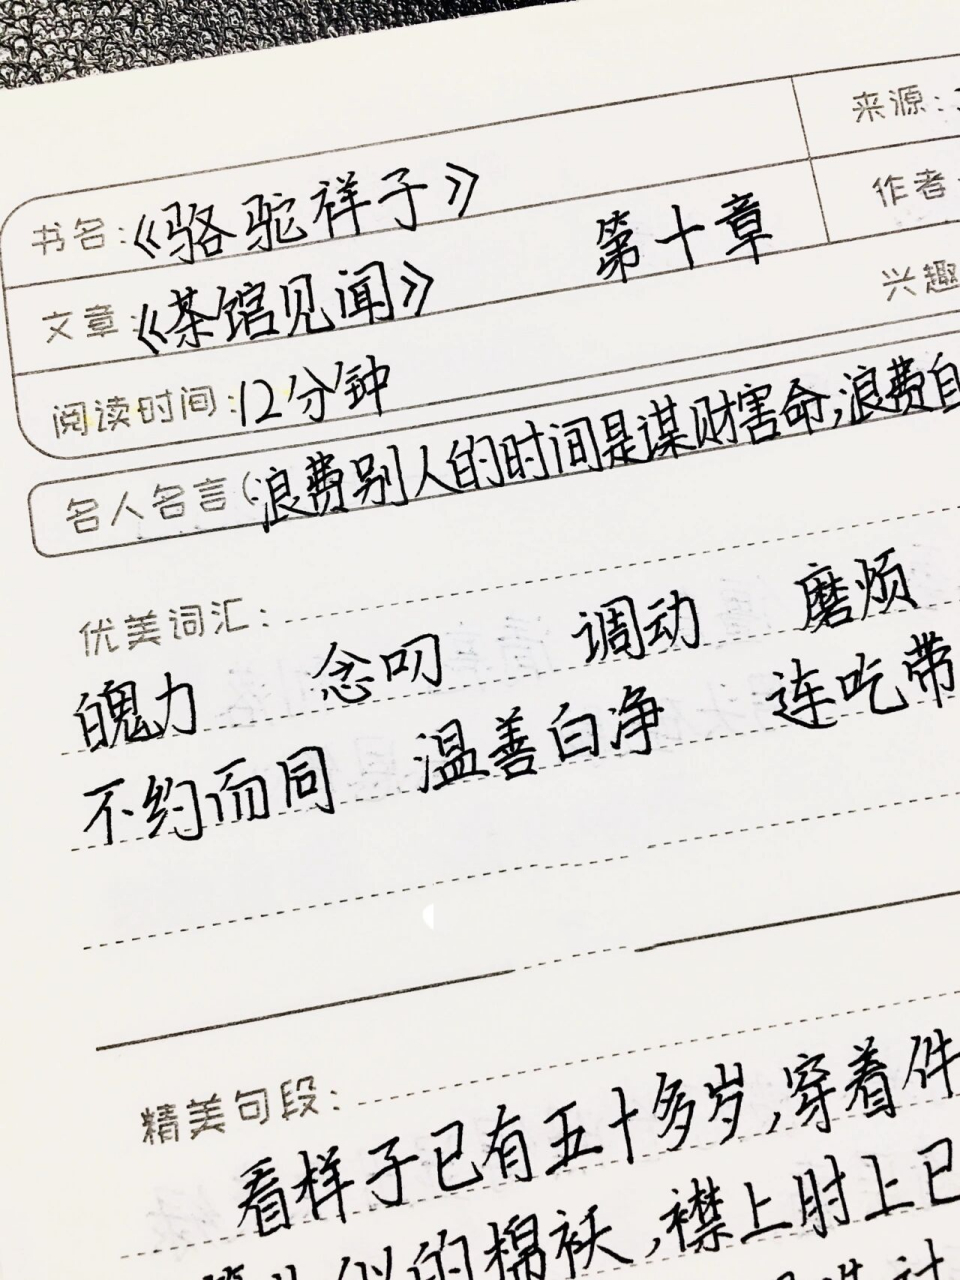 来源:
书名:《骆驼祥子》
作者
文章:《茶馆见闻》 第十章
兴趣
阅读时间:12分钟
名人名言(:浪费别人的时间是谋财害命,浪费自
优美词汇:
魄力 念叨 调动 磨烦
不约而同 温善白净 连吃带
精美句段:
看样子已有五十多岁,穿着件
似的棉袄,襟上肘上已